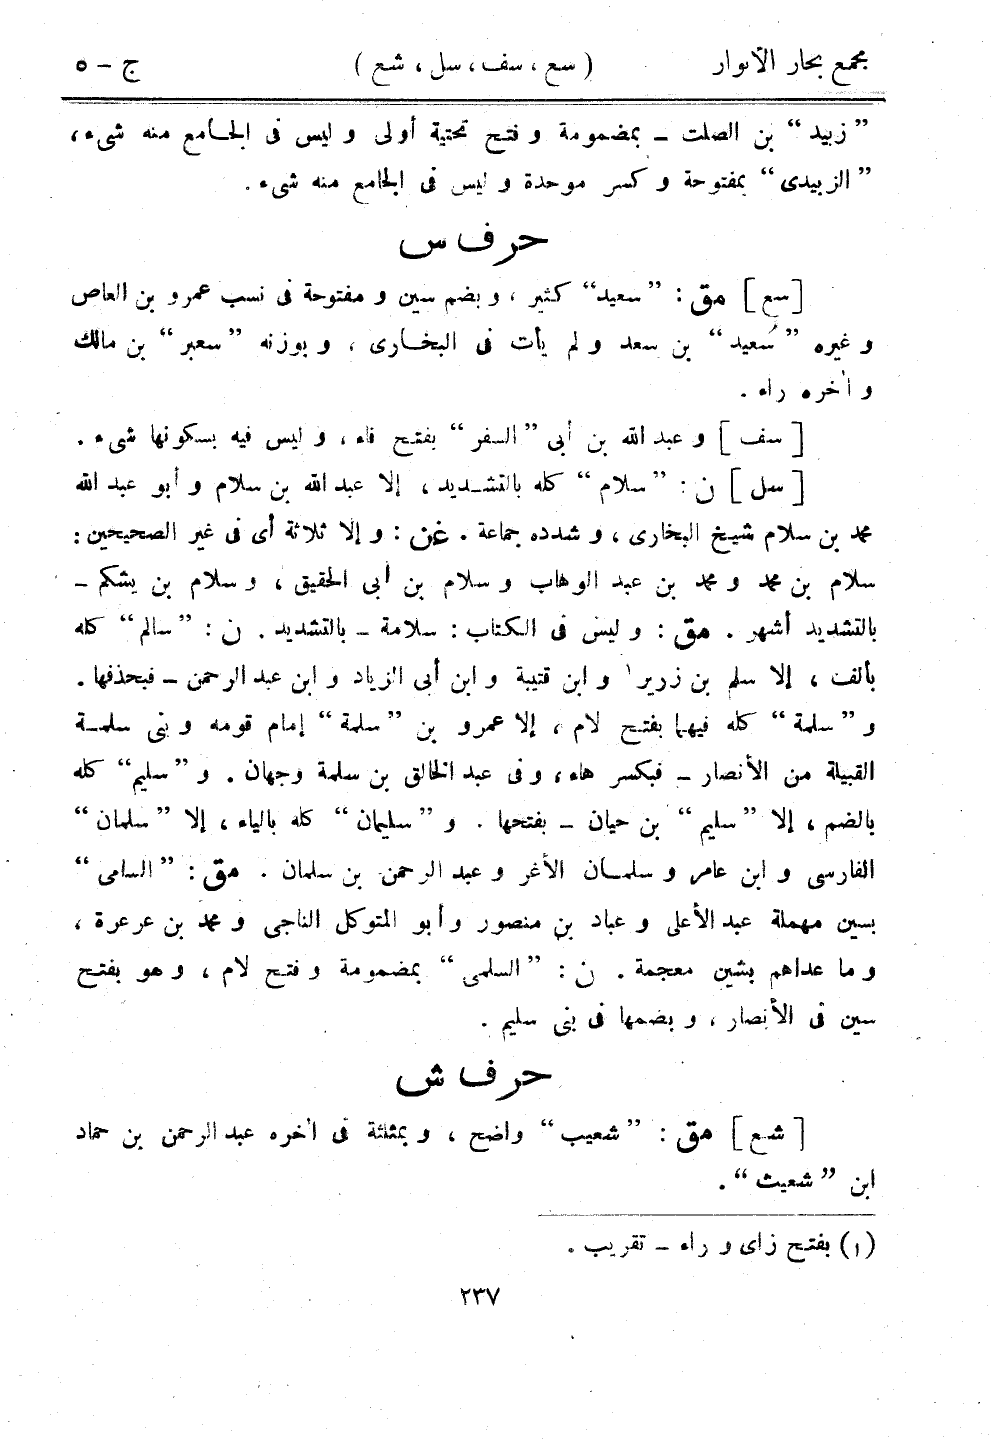 مجمع بحار الأنوار ( سع ، سف ، سل ، شع ) ج - ٥
” زبيد “ بن الصلت – بمضمومة و فتح تحتية أولى و ليس فى الجامع منه شىء ،
” الزبيدى “ بمفتوحة و كسر موحدة و ليس فى الجامع منه شىء .
حرف س
[ سع ] مق : ” سعيد “ كثير ، و بضم سين و مفتوحة فى نسب عمرو بن العاص
و غيره ” سُعيد “ بن سعد و لم يأت فى البخارى ، و بوزنه ” سعير “ بن مالك
و اٰخره راء .
[ سف ] و عبد الله بن أبى ” السفر “ بفتح فاء ، و ليس فيه بسكونها شىء .
[ سل ] ن : ” سلام “ كله بالتشديد ، إلا عبد الله بن سلام و أبو عبد الله
محمد بن سلام شيخ البخارى ، و شدده جماعة . غن : و إلا ثلاثة أى فى غير الصحيحين :
سلام بن محمد و محمد بن عبد الوهاب و سلام بن أبى الحقيق ، و سلام بن يشكم –
بالتشديد أشهر . مق : و ليس فى الكتاب : سلامة – بالتشديد . ن : ” سالم “ كله
بألف ، إلا سلم بن زرير ١ و ابن قتيبة و ابن أبى الزياد و ابن عبد الرحمن – فبحذفها .
و ” سلمة “ كله فيهما بفتح لام ، إلا عمرو بن ” سلمة “ إمام قومه و بنى سلمة
القبيلة من الأنصار – فبكسر هاء ، و فى عبد الخالق بن سلمة وجهان . و ” سليم “ كله
بالضم ، إلا ” سليم “ بن حيان – بفتحها . و ” سليمان “ كله بالياء ، إلا ” سلمان “
الفارسى و ابن عامر و سلمان الأغر و عبد الرحمن بن سلمان . مق : ” السامى “
بسين مهملة عبد الأعلى و عباد بن منصور و أبو المتوكل الناجى و محمد بن عرعرة ،
و ما عداهم بشين معجمة . ن : ” السلمى “ بمضمومة و فتح لام ، و هو بفتح
سين فى الأنصار ، و بضمها فى بنى سليم .
حرف ش
[ شع ] مق : ” شعيب “ واضح ، و بمثلثة فى اٰخره عبد الرحمن بن حماد
ابن ” شعيث “ .
(١) بفتح زاى و راء – تقريب .
٢٣٧